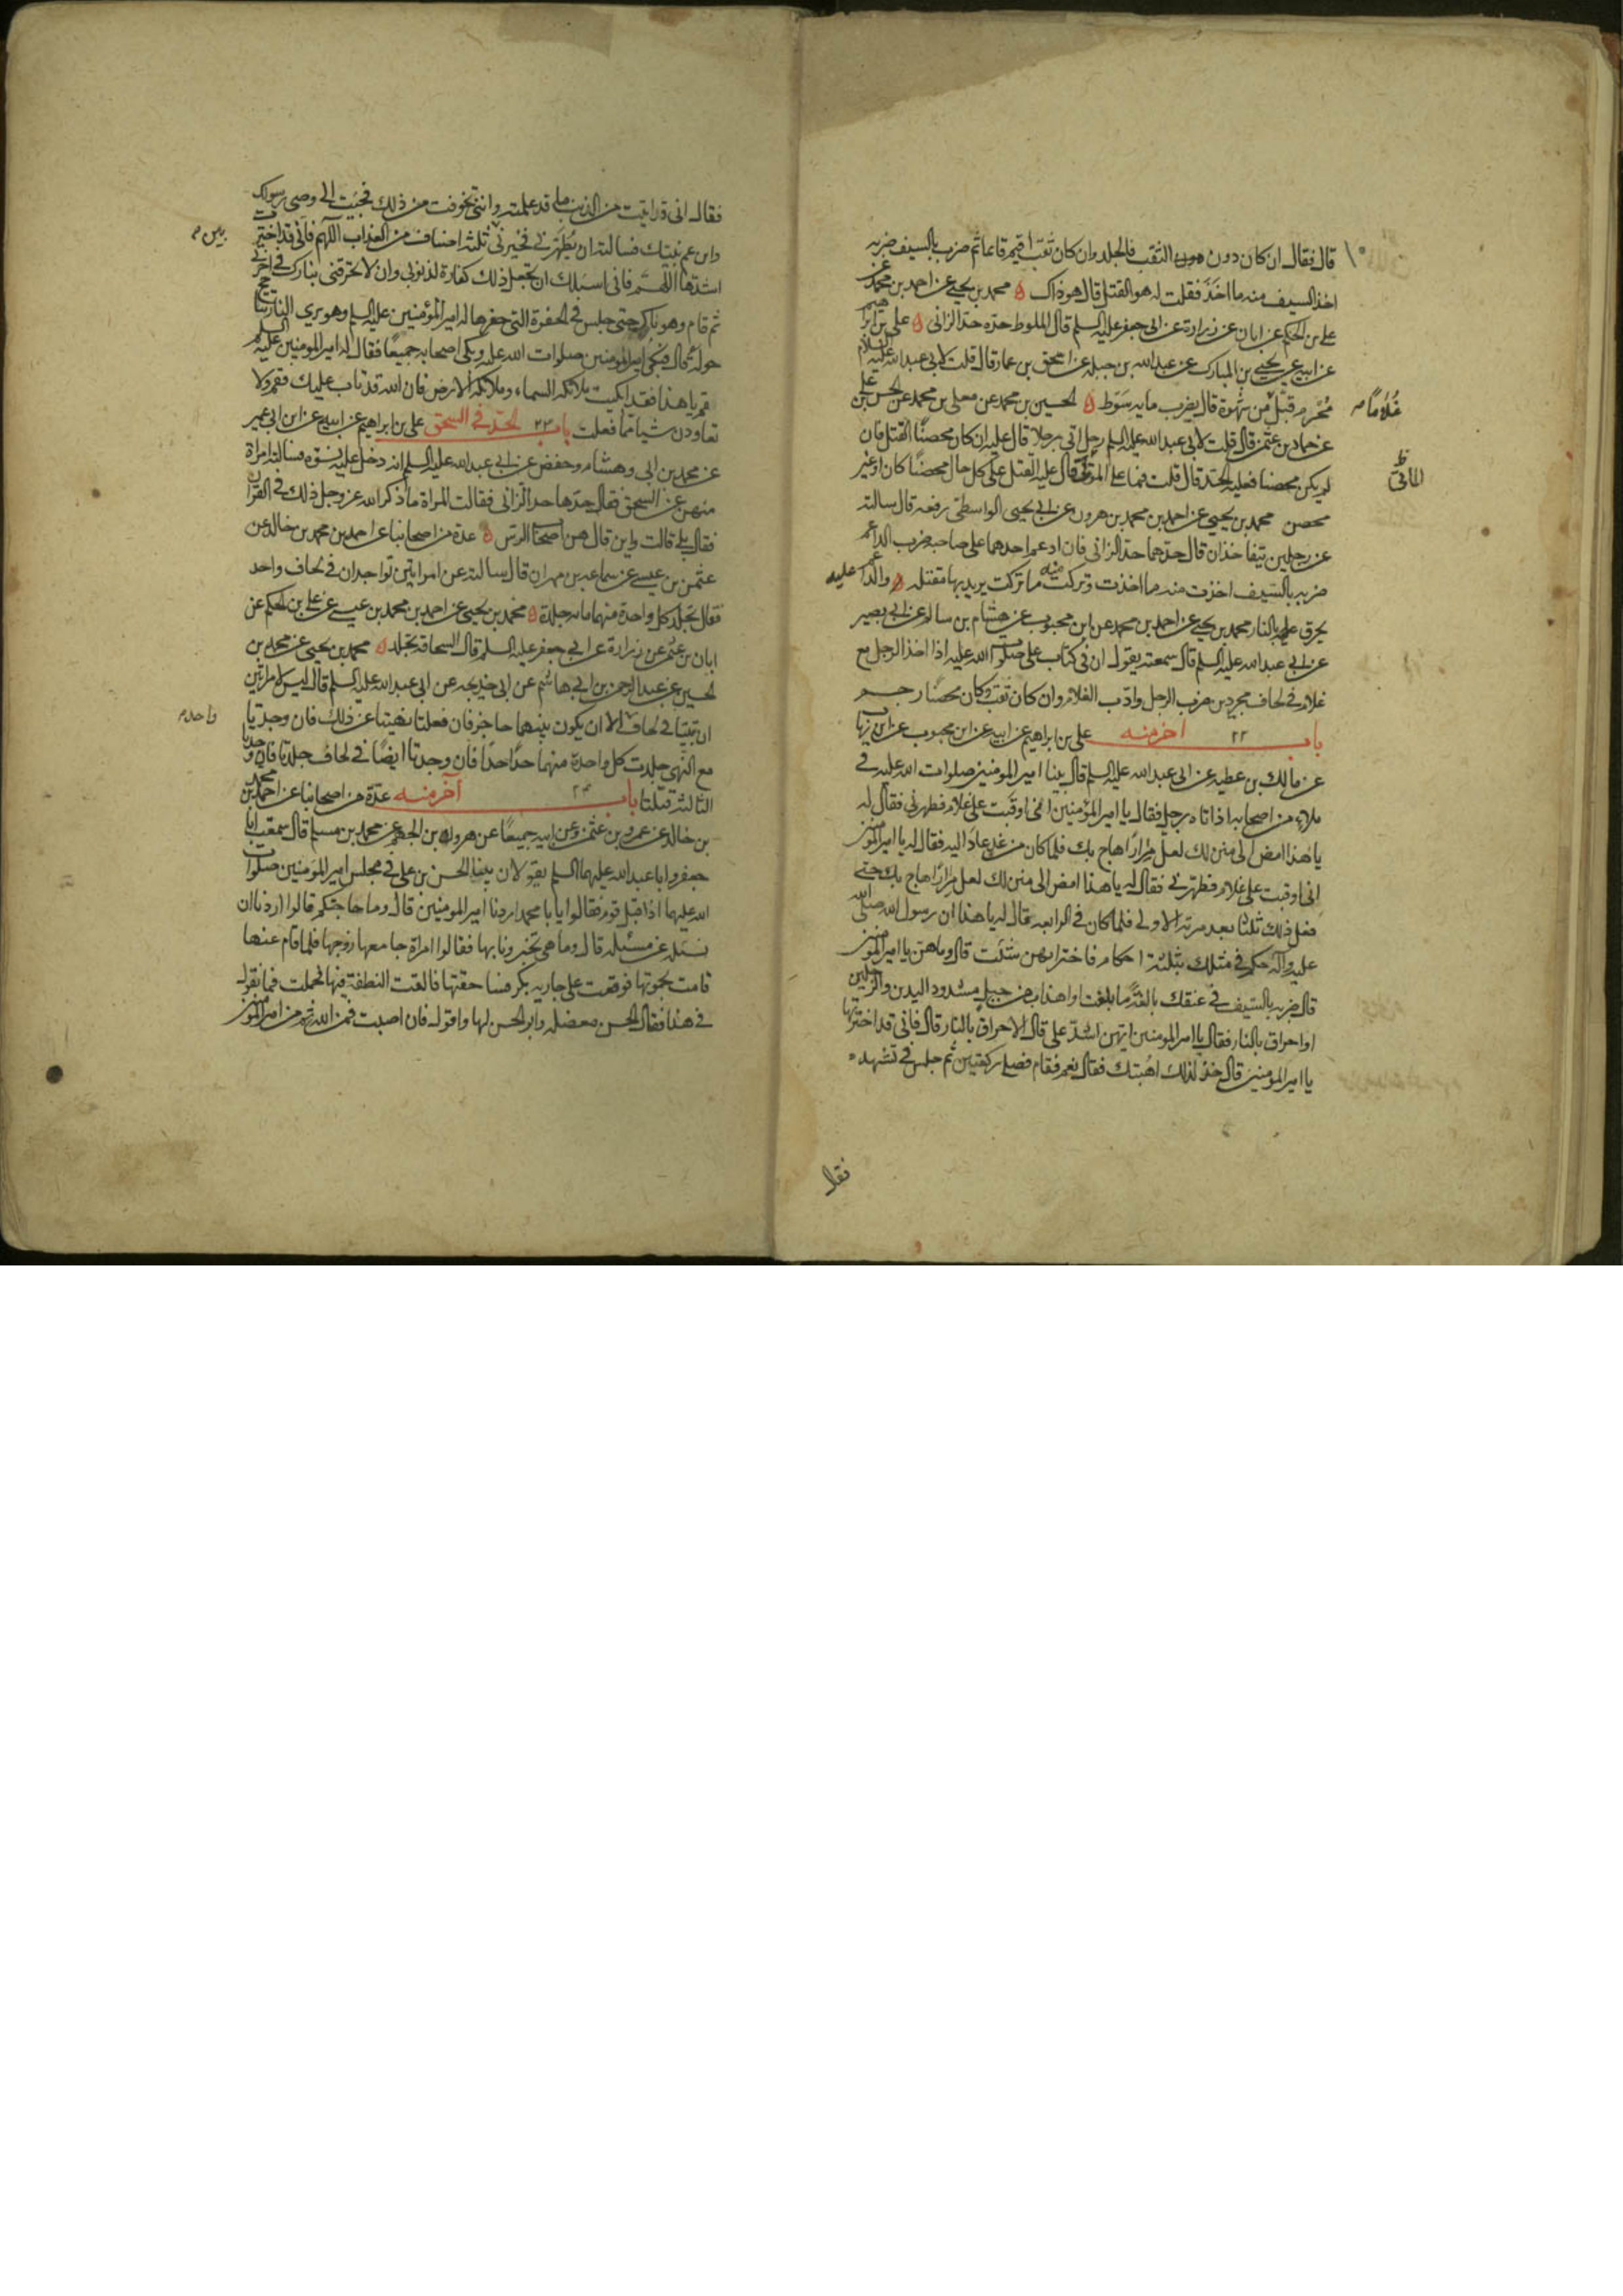 قال فقال ان كان دون الثقب فالجلد وان كان ثقب اقيم قائما ثم ضرب بالسيف ضربه
اخذ السيف منه ما اخذ فقلت له هو القتل قال هو ذاك محمد بن يحيى عن احمد بن محمد عن
على بن الحكم عن ابان عن زرارة عن ابى جعفر عليه السلم قال الملوط حده حد الزانى على بن ابرهيم
عن ابيه عن يحيى بن المبارك عن عبد الله بن جبله عن اسحق بن عمار قال قلت لابى عبد الله عليه السلام
محرم قبل من شهوة قال يضرب مايه سوط الحسين بن محمد عن معلى بن محمد عن الحسن بن على
غلاما
عن حماد بن عثمن قال قلت لابى عبد الله عليه السلم رجل اتى رجلا قال عليه ان كان محصنا القتل فان
لم يكن محصنا فعليه الحد قال قلت فما على الموتى قال عليه القتل على كل حال محصنا كان او غير
محصن محمد بن يحيى عن احمد بن محمد بن هرون عن ابى يحيى الواسطى رفعه قال سالته
عن رجلين يتفاخذان قال حدهما حد الزانى فان ادعم احدهما على صاحبه ضرب الداعم
ضربه بالسيف اخذت منه ما اخذت وتركت منه ما تركت يريد بها مقتله والداعم عليه
يحرق بالنار محمد بن يحيى عن احمد بن محمد عن ابن محبوب عن هشام بن سالم عن ابى بصير
عن ابى عبد الله عليه السلم قال سمعته يقول ان فى كتاب على صلوات الله عليه اذا اخذ الرجل مع
غلام فى لحاف مجردين ضرب الرجل وادب الغلام وان كان ثقب وكان محصنا رجم
باب ٢٢ اخر منه على بن ابراهيم عن ابيه عن ابن محبوب عن ابن رياب
عن مالك بن عطيه عن ابى عبد الله عليه السلم قال بينا امير المومنين صلوات الله عليه فى
ملاء من اصحابه اذا تاه رجل فقال يا امير المؤمنين انى اوقبت على غلام فطهرنى فقال له
يا هذا امض الى منزلك لعل مرارا هاج بك فلما كان من غد عاد اليه فقال له يا امير المومنين
انى اوقبت على غلام فطهرنى فقال له يا هذا امض الى منزلك لعل مرارا هاج بك حتى
فعل ذلك ثلثا بعد مرته الاولى فلما كان فى الرابعه قال له يا هذا ان رسول الله صلى الله
عليه وآله حكم فى مثلك بثلثة احكام فاختر ايهن شئت قال وما هن يا امير المومنين
قال ضربه بالسيف فى عنقك بالغة ما بلغت او اهداب من جبل مشدود اليدين والرجلين
او احراق بالنار فقال يا امير المومنين ايهن اشد على قال الاحراق بالنار قال فانى قد اخترتها
يا امير المومنين قال خذ لذلك اهبتك فقال نعم فقام فصلى ركعتين ثم جلس فى تشهده
فقال
فقال انى قد اتيت من الذنب ما قد علمته وانى تخوفت من ذلك فجيت الى وصى رسولك
وابن عم نبيك فسالته ان يطهرنى فخيرنى ثلثة اصناف من العذاب اللهم فانى قد اخترت
اشدها اللهم فانى اسئلك ان تجعل ذلك كفارة لذنوبى وان لا تحرقنى بنارك فى اخرتى
ثم قام وهو باك حتى جلس فى الحفرة التى حفرها له امير المؤمنين عليه السلم وهو يرى النار تتاجج
حوله قال فبكى امير المومنين صلوات الله عليه وبكى اصحابه جميعا فقال له امير المومنين عليه السلم
قم يا هذا فقد ابكيت ملائكه السماء وملائكه الارض فان الله قد تاب عليك فقم ولا
تعاودن شيا مما فعلت باب ٢٣ الحد فى السحق على بن ابراهيم عن ابيه عن ابن ابى عمير
عن محمد بن ابى وهشام وحفص عن ابى عبد الله عليه السلم انه دخل عليه نسوه فسالته امراة
منهن عن السحق فقال حدها حد الزانى فقالت المراة ما ذكر الله عز وجل ذلك فى القران
فقال بلى قالت واين قال هن اصحاب الرس عدة من اصحابنا عن احمد بن محمد بن خالد عن
عثمن بن عيسى عن سماعه بن مهران قال سالته عن امراتين توجدان فى لحاف واحد
فقال تجلد كل واحدة منهما مايه جلدة محمد بن يحيى عن احمد بن محمد بن عيسى عن على بن الحكم عن
ابان بن عثمن عن زرارة عن ابى جعفر عليه السلم قال السحاقه تجلد محمد بن يحيى عن محمد بن
الحسين عن عبد الرحمن بن ابى هاشم عن ابى خديجه عن ابى عبد الله عليه السلم قال ليس لامراتين
ان تبيتا فى لحاف الا ان يكون بينهما حاجز فان فعلتا نهيتا عن ذلك فان وجدتا
واحد
مع النهى جلدت كل واحدة منهما حدا حدا فان وجدتا ايضا فى لحاف جلدتا فان وجدتا
الثالثة قتلتا باب ٢٤ آخر منه عدة من اصحابنا عن احمد بن محمد
بن خالد عن عمرو بن عثمن وعن ابيه جميعا عن هرون بن الجهم عن محمد بن مسلم قال سمعت ابا
جعفر وابا عبد الله عليهما السلم يقولان بينا الحسن بن على فى مجلس امير المومنين صلوات
الله عليهما اذا قبل قوم فقالوا يا با محمد اردنا امير المومنين قال وما حاجتكم قالوا اردنا ان
نسئله عن مسئله قال وما هى تخبرونا بها فقالوا امراة جامعها زوجها فلما قام عنها
قامت بحموتها فوقعت على جاريه بكر فساحقتها فالقت النطفة فيها فحملت فما تقول
فى هذا فقال الحسن معضله وابو الحسن لها واقول فان اصبت فمن الله ثم من امير المومنين